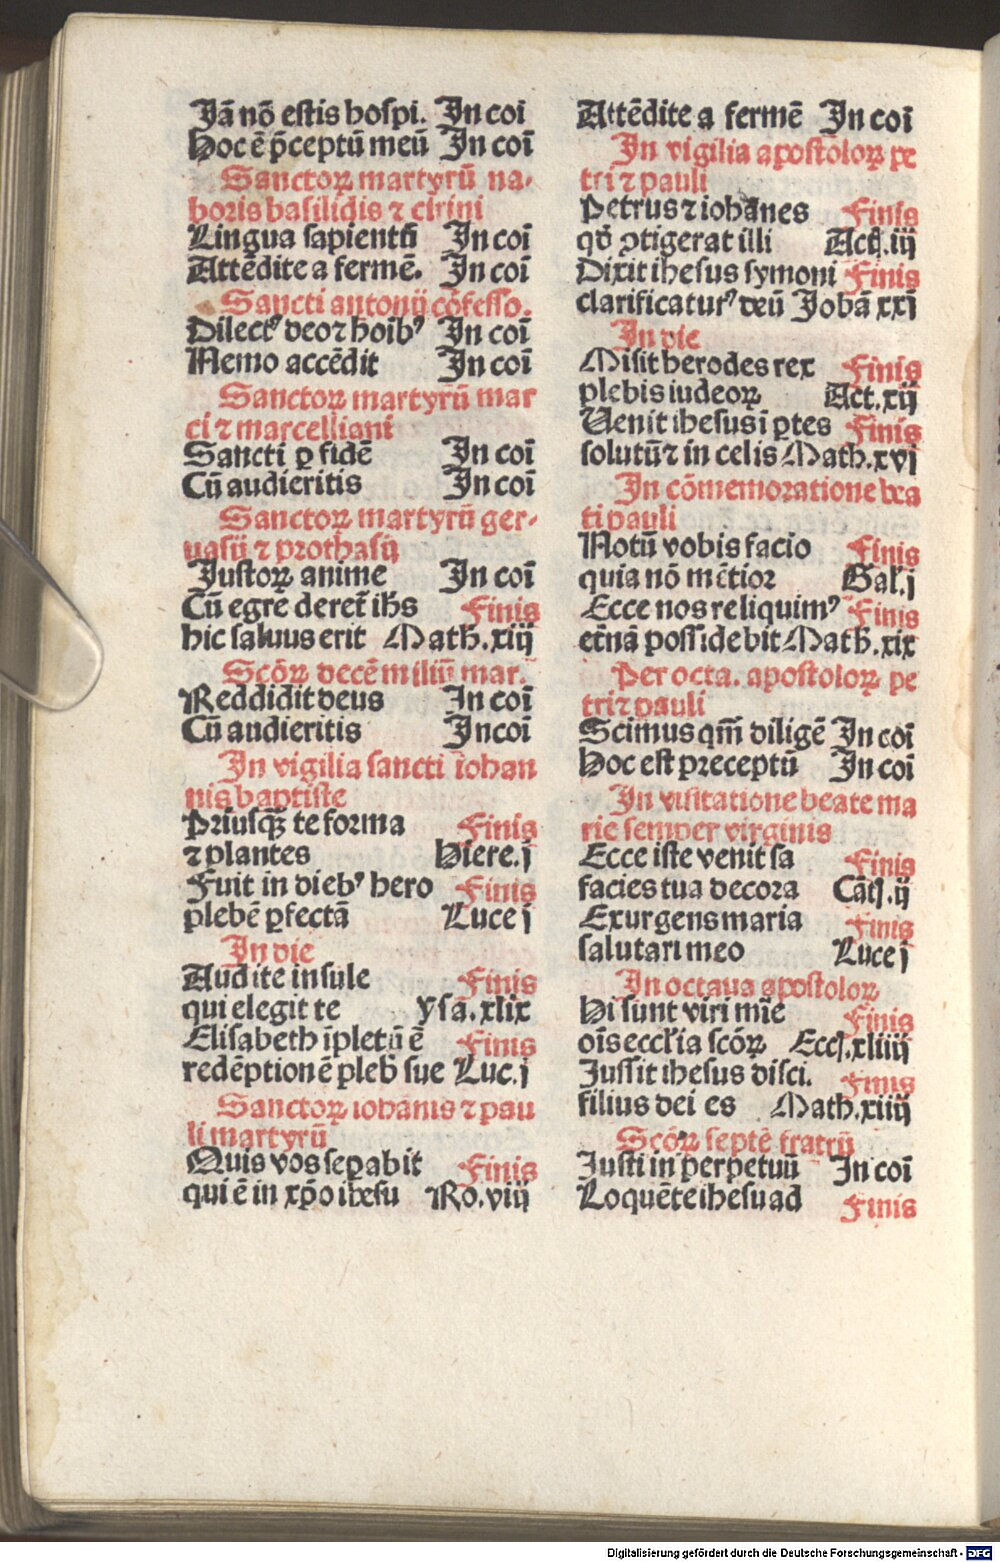 Jā nō estis hospi. In coi
Hoc ē p̄ceptū meū In coī
Sanctoꝝ martyrū na-
boris basilidis ⁊ cirini
Lingua sapientū In coī
Attēdite a fermē. In coī
Sancti antonij cōfesso.
Dilectꝰ deo ⁊ hoibꝰ In coī
Nemo accēdit In coī
Sanctoꝝ martyrū mar
ci ⁊ marcelliani
Sancti ꝑ fidē In coī
Cū audieritis In coī
Sanctoꝝ martyrū ger-
uasij ⁊ prothasij
Justoꝝ anime In coī
Cū egre deret̄ ih̄s Finis
hic saluus erit Math̄.xiij
Scōꝝ decē miliū mar.
Reddidit deus In coi
Cū audieritis In coī
In vigilia sancti iohan
nis baptiste
Priusqꝫ te forma Finis
⁊ plantes Hiere.j
Fuit in diebꝰ hero Finis
plebē ꝑfectā Luce j
In die
Audite insule Finis
qui elegit te ysā.xlix
Elisabeth īpletū ē Finis
redēptionē pleb̄ sue Luc.j
Sanctoꝝ iohānis ⁊ pau
li martyrū
Quis vos seꝑabit Finis
qui ē in xp̄o ihesu Ro.viij
Attēdite a fermē In coī
In vigilia apostoloꝝ pe
tri ⁊ pauli
Petrus ⁊ iohānes Finis
qd̄ ꝯtigerat illi Act̄.iij
Dixit ihesus symoni Finis
clarificaturꝰ deū Johā xxj
In die
Misit herodes rex Finis
plebis iudeoꝝ Act.xij
Venit ihesus ī ꝑtes Finis
solutū ⁊ in celis Math̄.xvj
In cōmemoratione bea
ti pauli
Notū vobis facio Finis
quia nō mētior Gal̄.j
Ecce nos reliquimꝰ Finis
et̄nā possidebit Math̄.xix
Per octa. apostoloꝝ pe
tri ⁊ pauli
Scimus qm̄ diligē In coī
Hoc est preceptū In coī
In visitatione beate ma
rie semper virginis
Ecce iste venit sa Finis
facies tua decora Cāt̄.ij
Exurgens maria Finis
salutari meo Luce j
In octaua apostoloꝝ
Hi sunt viri mīe Finis
oīs eccl̄ia scōꝝ Eccl̄.xliiij
Jussit ihesus disci. Finis
filius dei es Math.xiiij
Scōꝝ septē fratrū
Justi in perpetuū In coī
Loquēte ihesu ad Finis
Digitalisierung gefördert durch die Deutsche Forschungsgemeinschaft - DFG